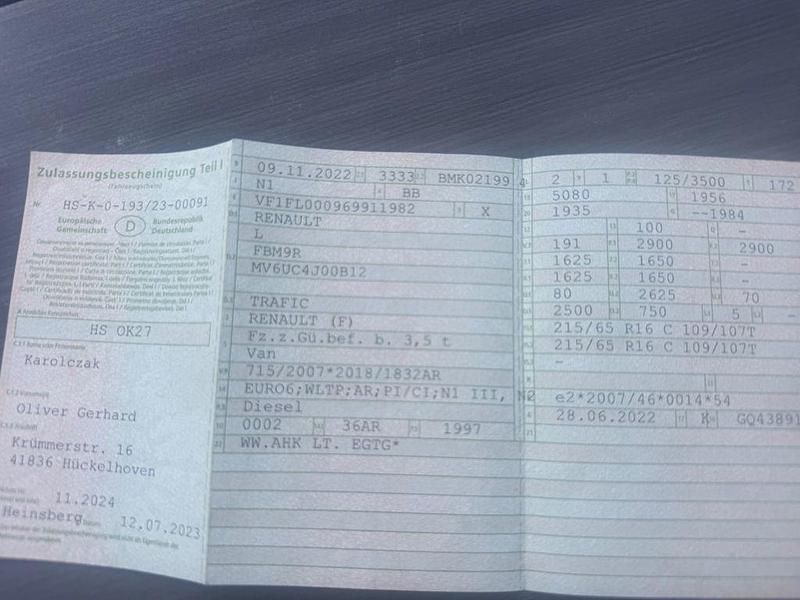 Zulassungsbescheinigung Teil I
(Fahrzeugschein)
Nr. HS-K-0-193/23-00091
Europäische Gemeinschaft
D
Bundesrepublik Deutschland
HS OK27
Karolczak
Oliver Gerhard
Krümmerstr. 16
41836 Hückelhoven
11.2024
Heinsberg 12.07.2023
09.11.2022 3333 BMK02199 4
N1 BB
VF1FL000969911982 X
RENAULT
L
FBM9R
MV6UC4J00B12
TRAFIC
RENAULT (F)
Fz.z.Gü.bef. b. 3,5 t
Van
715/2007*2018/1832AR
EURO6;WLTP;AR;PI/CI;N1 III, N2
Diesel
0002 36AR 1997
WW.AHK LT. EGTG*
2 1 125/3500 172
5080 1956
1935 --1984
100 -
191 2900 2900
1625 1650 -
1625 1650 -
80 2625 70
2500 750 5 -
215/65 R16 C 109/107T
215/65 R16 C 109/107T
-
e2*2007/46*0014*54
28.06.2022 K GQ43891